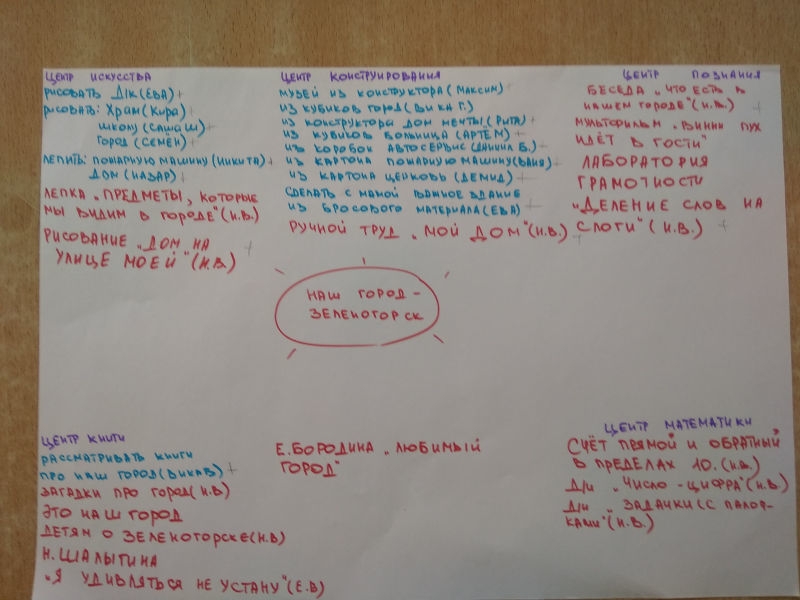 ЦЕНТР ИСКУССТВА
РИСОВАТЬ ДІК (ЕВА) +
РИСОВАТЬ: ХРАМ (КИРА) +
ШКОЛУ (САША Ш) +
ГОРОД (СЕМЁН) +
ЛЕПИТЬ: ПОЖАРНУЮ МАШИНУ (НИКИТА) +
ДОМ (НАЗАР) +
ЛЕПКА „ПРЕДМЕТЫ, КОТОРЫЕ
МЫ ВИДИМ В ГОРОДЕ" (Н.В.)
РИСОВАНИЕ „ДОМ НА +
УЛИЦЕ МОЕЙ" (Н.В.)
ЦЕНТР КОНСТРУИРОВАНИЯ
МУЗЕЙ ИЗ КОНСТРУКТОРА (МАКСИМ) +
ИЗ КУБИКОВ ГОРОД (ВИКА Г.) +
ИЗ КОНСТРУКТОРА ДОМ МЕЧТЫ (РИТА) +
ИЗ КУБИКОВ БОЛЬНИЦА (АРТЁМ) +
ИЗ КОРОБОК АВТОСЕРВИС (ДАНИИЛ Б.) +
ИЗ КАРТОНА ПОЖАРНУЮ МАШИНУ (ВАНЯ) +
ИЗ КАРТОНА ЦЕРКОВЬ (ДЕМИД) +
СДЕЛАТЬ С МАМОЙ ВАЖНОЕ ЗДАНИЕ
ИЗ БРОСОВОГО МАТЕРИАЛА (ЕВА) +
РУЧНОЙ ТРУД „МОЙ ДОМ" (Н.В.) +
ЦЕНТР ПОЗНАНИЯ
БЕСЕДА „ЧТО ЕСТЬ В
НАШЕМ ГОРОДЕ" (Н.В.) +
МУЛЬТФИЛЬМ „ВИННИ ПУХ
ИДЁТ В ГОСТИ" +
ЛАБОРАТОРИЯ
ГРАМОТНОСТИ
„ДЕЛЕНИЕ СЛОВ НА
СЛОГИ" (Н.В.) +
НАШ ГОРОД -
ЗЕЛЕНОГОРСК
ЦЕНТР КНИГИ
РАССМАТРИВАТЬ КНИГИ
ПРО НАШ ГОРОД (ВИКА Б) +
ЗАГАДКИ ПРО ГОРОД (Н.В)
ЭТО НАШ ГОРОД
ДЕТЯМ О ЗЕЛЕНОГОРСКЕ (Н.В)
Н. ШАЛЫГИНА
„Я УДИВЛЯТЬСЯ НЕ УСТАНУ" (Е.В)
Е. БОРОДИНА „ЛЮБИМЫЙ
ГОРОД"
ЦЕНТР МАТЕМАТИКИ
СЧЁТ ПРЯМОЙ И ОБРАТНЫЙ
В ПРЕДЕЛАХ 10. (Н.В.)
Д/И „ЧИСЛО - ЦИФРА" (Н.В.)
Д/И „ЗАДАЧКИ (С ПАЛОЧ-
КАМИ" (Н.В.)